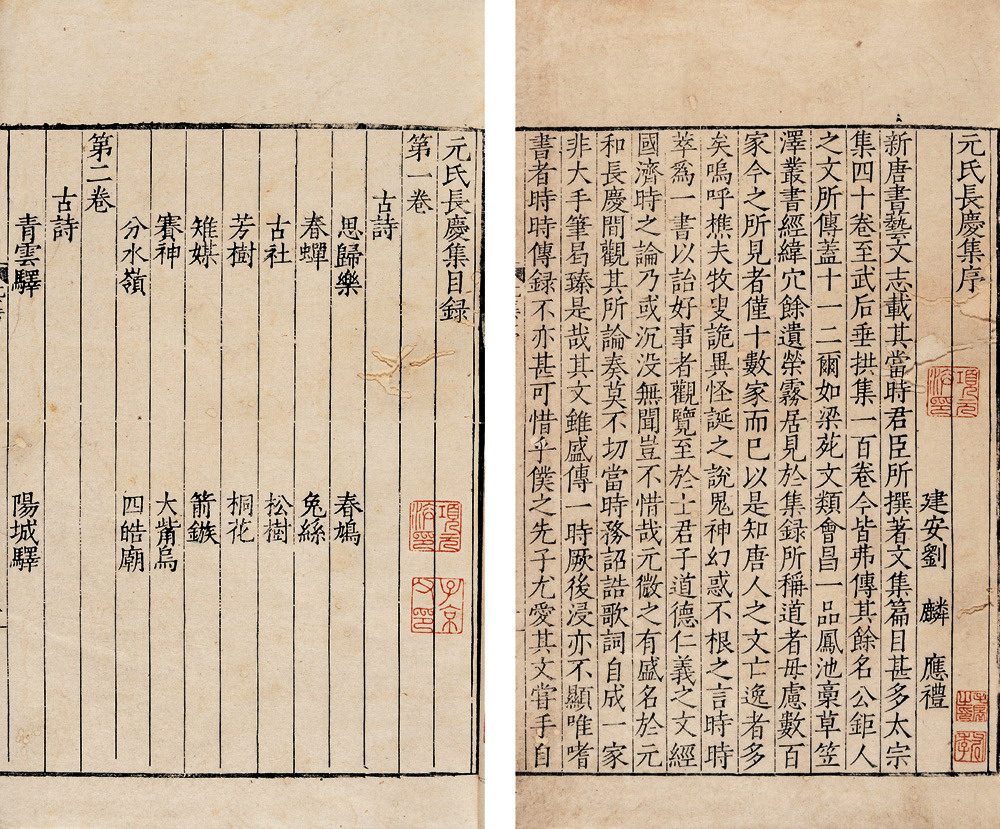 元氏長慶集序
建安劉 麟 應禮
新唐書藝文志載其當時君臣所撰著文集篇目甚多太宗
集四十卷至武后垂拱集一百卷今皆弗傳其餘名公鉅人
之文所傳蓋十一二爾如梁苑文類會昌一品鳳池稾草笠
澤叢書經緯穴餘遺榮霧居見於集録所稱道者毋慮數百
家今之所見者僅十數家而已以是知唐人之文亡逸者多
矣嗚呼樵夫牧叟詭異怪誕之說鬼神幻惑不根之言時時
萃爲一書以詒好事者觀覽至於士君子道德仁義之文經
國濟時之論乃或沉没無聞豈不惜哉元微之有盛名於元
和長慶間觀其所論奏莫不切當時務詔誥歌詞自成一家
非大手筆曷臻是哉其文雖盛傳一時厥後浸亦不顯唯嗜
書者時時傳録不亦甚可惜乎僕之先子尤愛其文嘗手自
元氏長慶集目録
第一卷
古詩
思歸樂 春鳩
春蟬 兔絲
古社 松樹
芳樹 桐花
雉媒 箭鏃
賽神 大觜烏
分水嶺 四皓廟
第二卷
古詩
青雲驛 陽城驛
項元汴印
子京父印